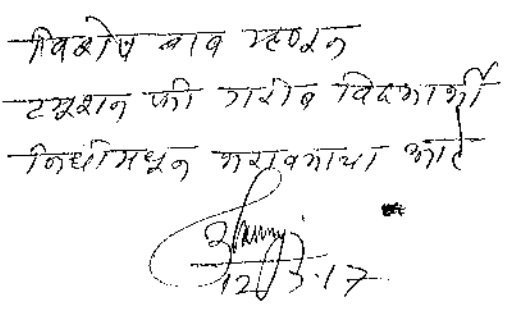 विशेष बाब म्हणून
ट्यूशन फी गरीब विद्यार्थी
निधीमधून भरावयाचा आहे
12/3.17